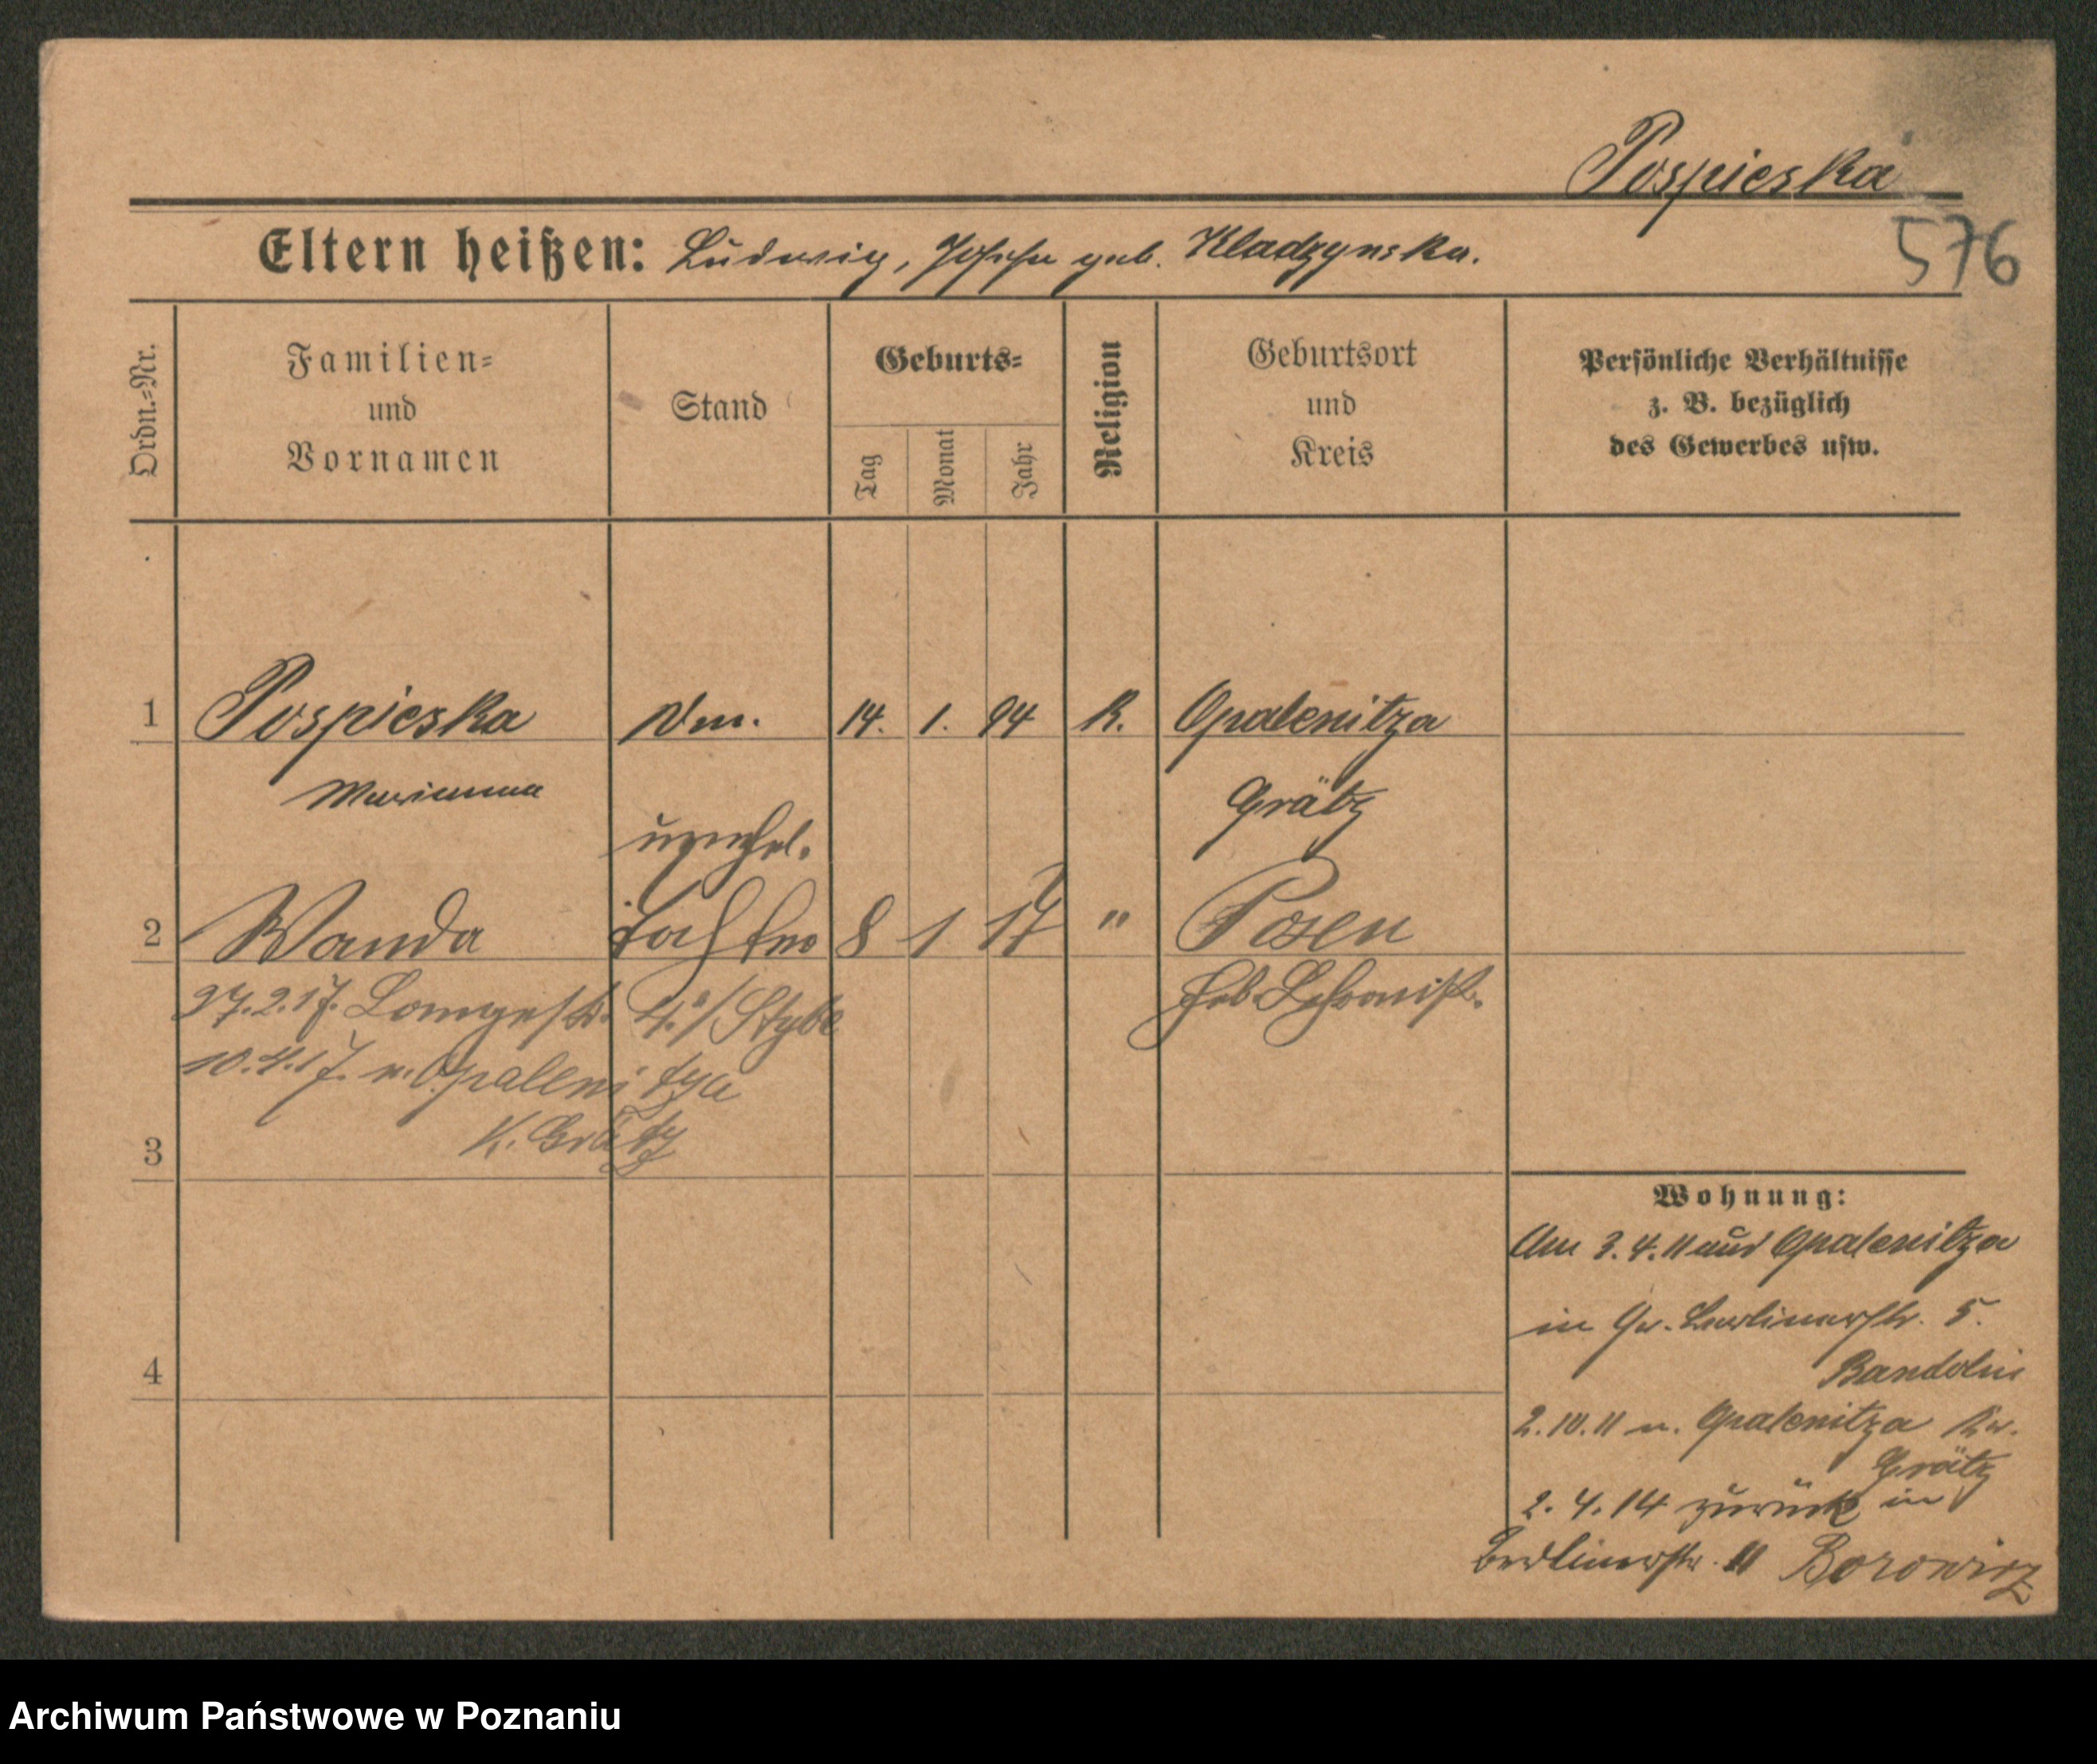 Pospieska
576
Eltern heißen: Ludwig, Josefa geb. Kladzynska.
Ordn.-Nr.
Familien=
und
Vornamen
Stand
Geburts=
Tag
Monat
Jahr
Religion
Geburtsort
und
Kreis
Persönliche Verhältnisse
z. B. bezüglich
des Gewerbes usw.
1 Pospieska 14. 1. 94 K. Opalenitza
Marianna Grätz
unehel.
2 Wanda Tochter 8 1 17 " Posen
27.2.17. 4. b/ Stybe
Heb.
10.4.17. n. Opalenitza
K. Grätz
3
4
Wohnung:
Am 3.4.11 aus Opalenitza
in Gr. Berlinerstr. 5.
2.10.11 n. Opalenitza Kr.
Grätz
2.4.14 zurück in
Berlinerstr. 11 Borowicz
Archiwum Państwowe w Poznaniu